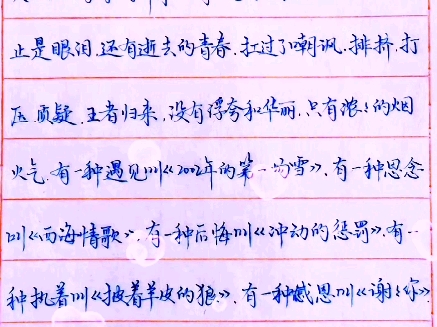 止是眼泪,还有逝去的青春,扛过了嘲讽.排挤.打
压.质疑.王者归来,没有浮夸和华丽,只有浓々的烟
火气.有一种遇见叫《2002年的第一场雪》,有一种思念
叫《西海情歌》,有一种后悔叫《冲动的惩罚》,有一
种执着叫《披着羊皮的狼》,有一种感恩叫《谢々你》